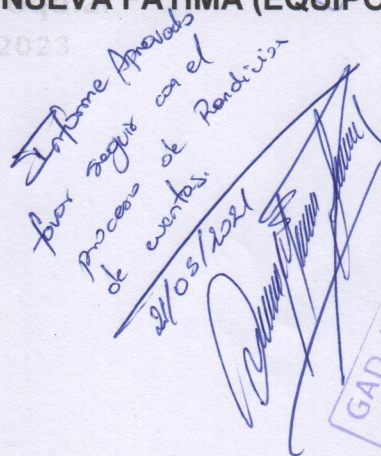 NUEVA FÁTIMA (EQUIPO
2023
Informe Aprovado
favor seguir con el
proceso de Rendicion
de cuentas.
21/05/2021
GAD